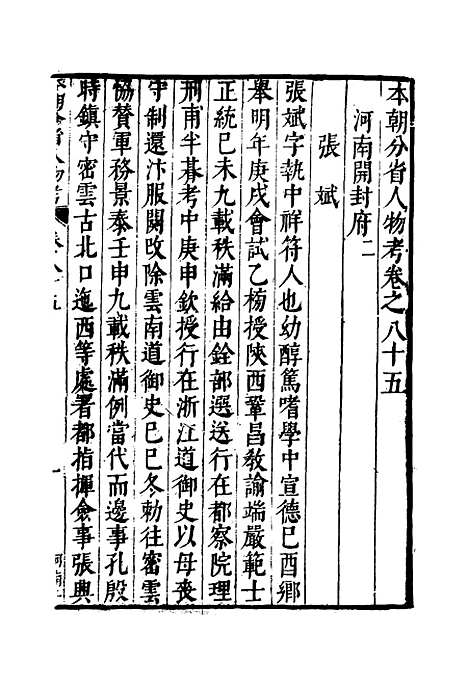 本朝分省人物考卷之八十五
河南開封府二
張斌
張斌字執中祥符人也幼醇篤嗜學中宣德己酉鄉
舉明年庚戌會試乙榜授陝西鞏昌教諭端嚴範士
正統己未九載秩滿給由銓部選送行在都察院理
刑甫半暮考中庚申欽授行在浙江道御史以母喪
守制還汴服闋改除雲南道御史己巳冬勅往密雲
協贊軍務景泰壬申九載秩滿例當代而邊事孔殷
時鎮守密雲古北口迤西等處署都指揮僉事張興
本朝分省人物考
卷八十五
一
河南二